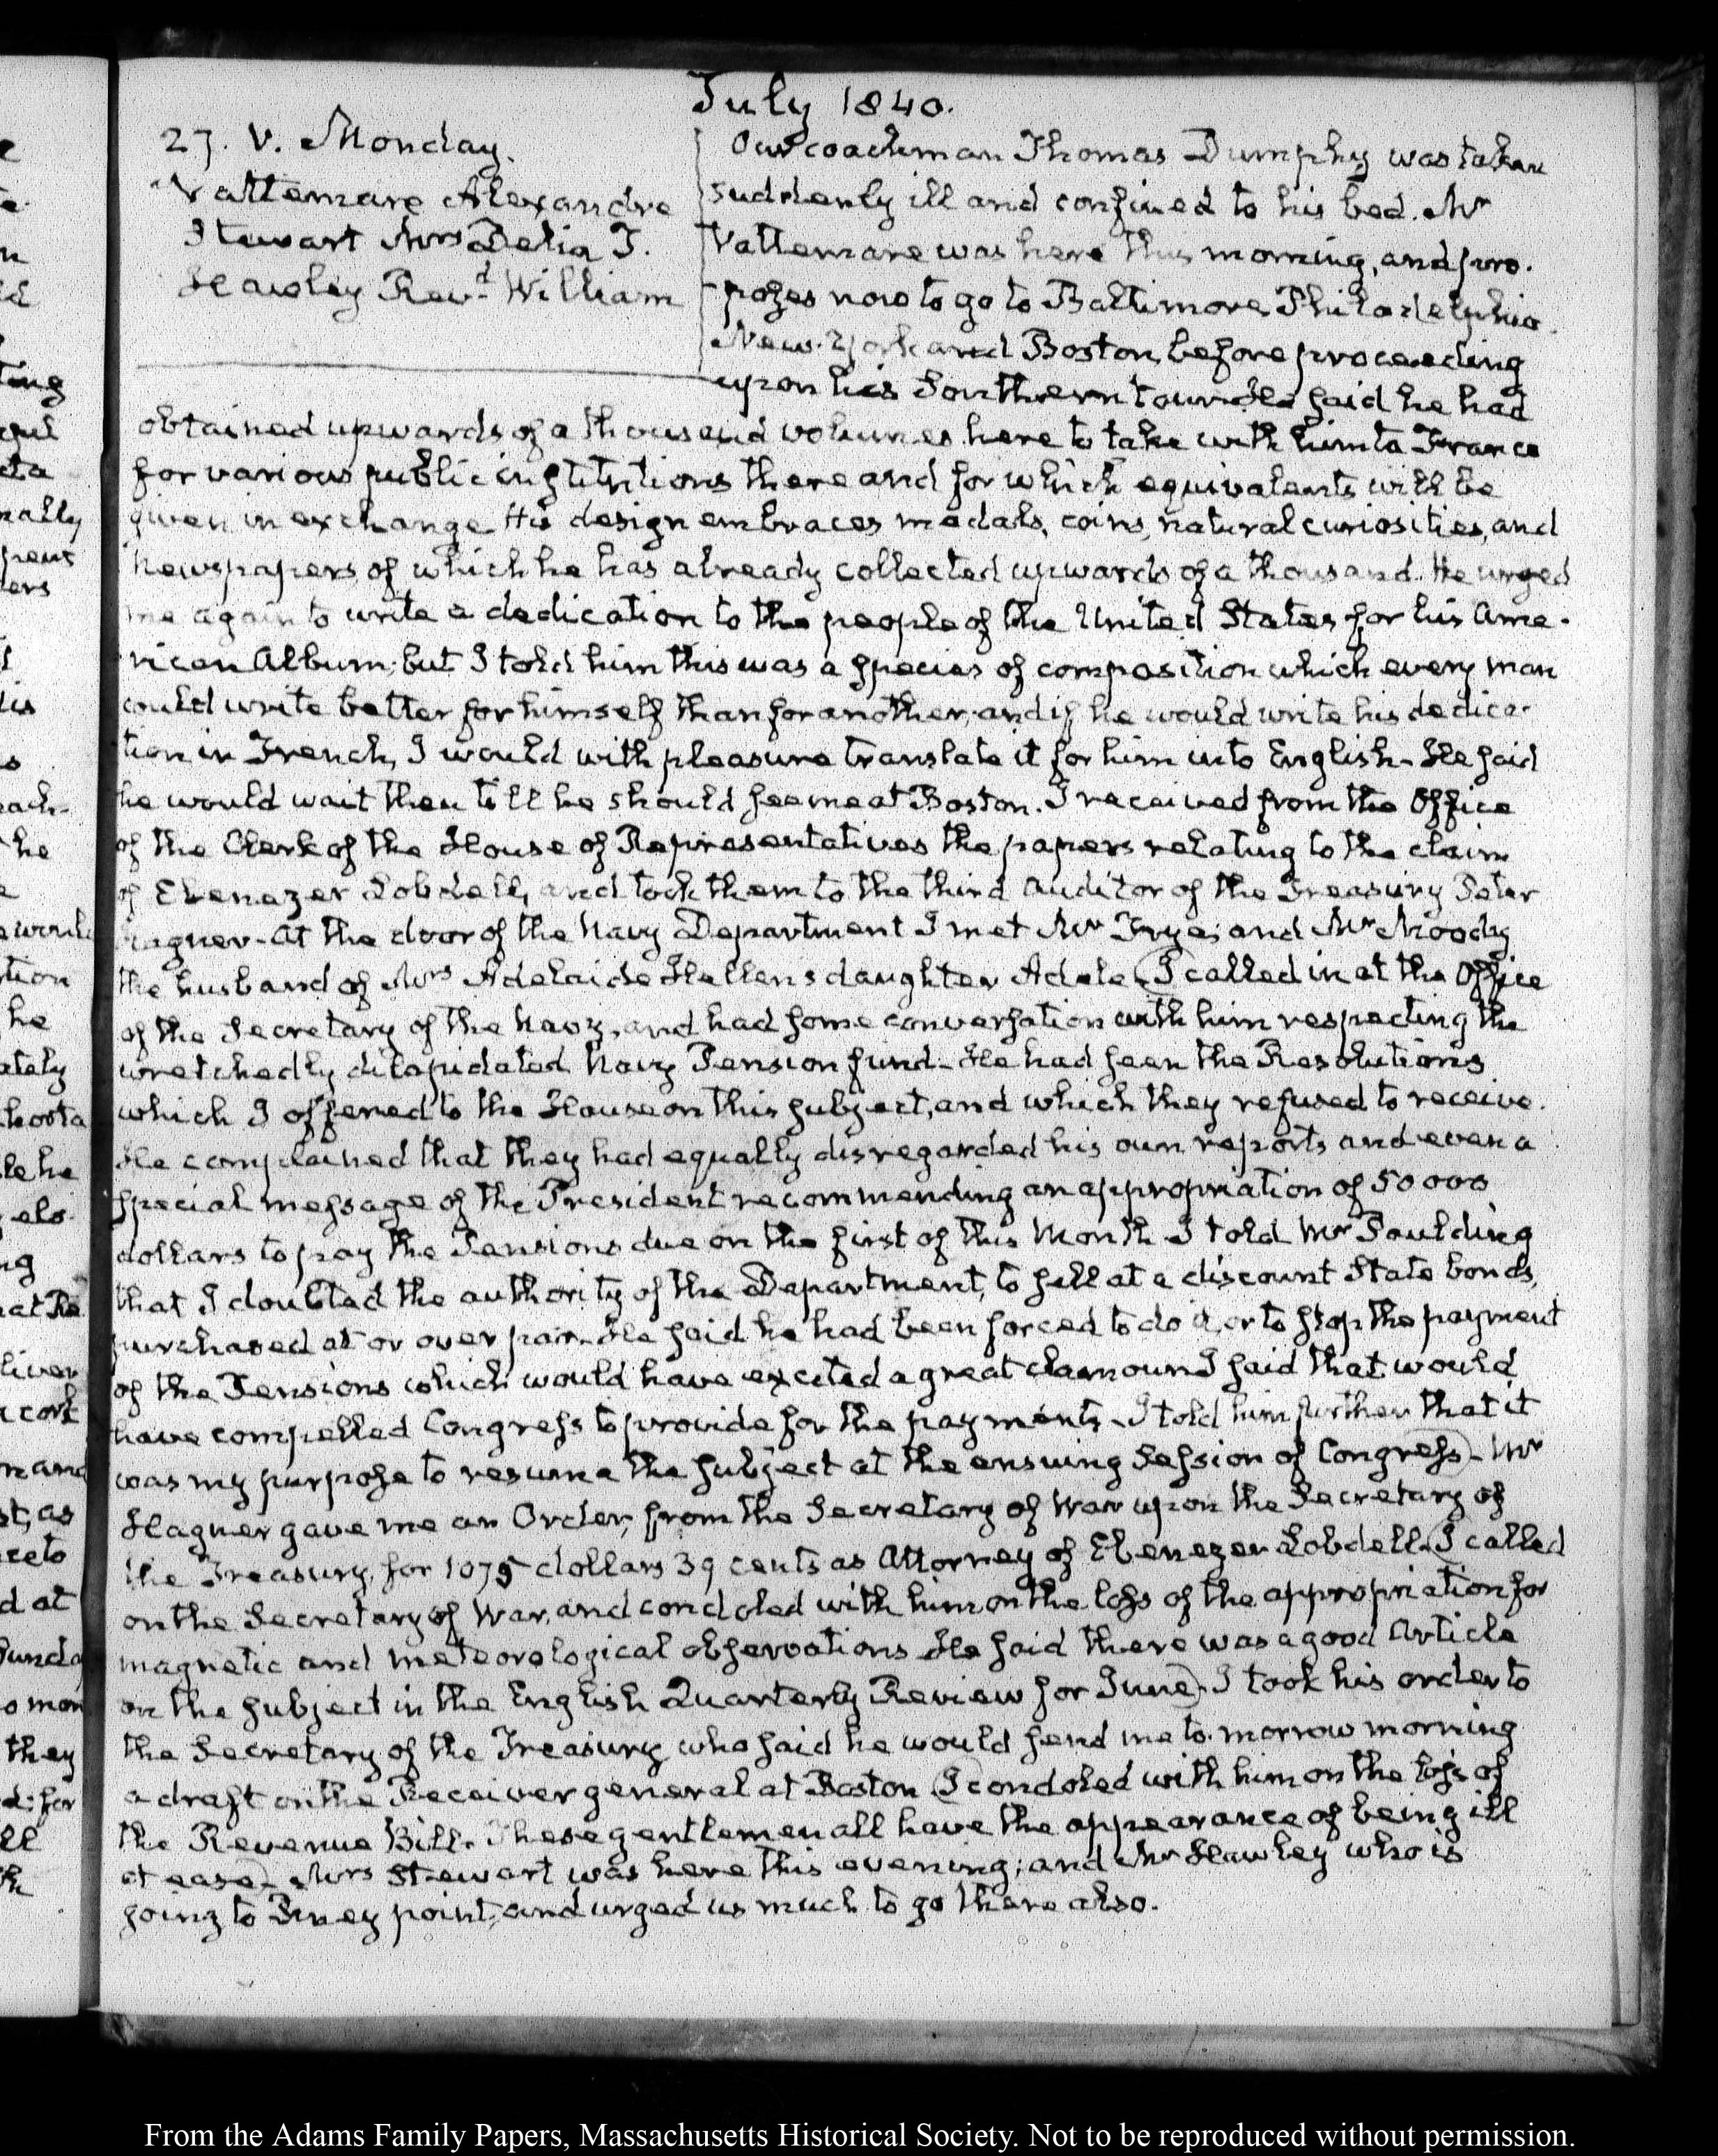 July 1840.
27. V. Monday.
Vattemare Alexandre
Stewart Mrs Delia T.
Hawley Revd. William
Our coachman Thomas Dumphy was taken
suddenly ill and confined to his bed. Mr
Vattemare was here this morning, and pro-
poses now to go to Baltimore, Philadelphia
New-York and Boston, before proceeding
upon his Southern tour. He said he had
obtained upwards of a thousand volumes here to take with him to France
for various public institutions there and for which equivalents will be
given in exchange. His design embraces medals, coins, natural curiosities, and
Newspapers of which he has already collected upwards of a thousand. He urged
me again to write a dedication to the people of the United States for his Ame-
rican Album; but I told him this was a species of composition which every man
could write better for himself than for another; and if he would write his dedica-
tion in French, I would with pleasure translate it for him into English. He said
he would wait then till he should see me at Boston. I received from the Office
of the Clerk of the House of Representatives the papers relating to the claim
of Ebenezer Lobdell, and took them to the third Auditor of the Treasury Peter
Hagner. At the door of the Navy Department I met Mr Frye, and Mr Moody
the husband of Mrs Adelaide Hellen's daughter Adele. I called in at the Office
of the Secretary of the Navy, and had some conversation with him respecting the
wretchedly dilapidated Navy Pension fund. He had seen the Resolutions
which I offered to the House on this subject, and which they refused to receive.
He complained that they had equally disregarded his own reports and even a
special message of the President recommending an appropriation of 50000
dollars to pay the Pensions due on the first of this Month. I told Mr Paulding
that I doubted the authority of the Department, to sell at a discount State bonds,
purchased at or over par. He said he had been forced to do it, or to stop the payment
of the Pensions which would have excited a great clamour. I said that would
have compelled Congress to provide for the payments. I told him further that it
was my purpose to resume the subject at the ensuing Session of Congress. Mr
Hagner gave me an Order, from the Secretary of War upon the Secretary of
the Treasury, for 1075 dollars 39 cents as Attorney of Ebenezer Lobdell. I called
on the Secretary of War, and condoled with him on the loss of the appropriation for
magnetic and meteorological observations. He said there was a good Article
on the subject in the English Quarterly Review for June. I took his order to
the Secretary of the Treasury who said he would send me to-morrow morning
a draft on the Receiver general at Boston. I condoled with him on the loss of
the Revenue Bill. These gentlemen all have the appearance of being ill
at ease. Mrs Stewart was here this evening; and Mr Hawley who is
going to Piney point, and urged us much to go there also.
From the Adams Family Papers, Massachusetts Historical Society. Not to be reproduced without permission.